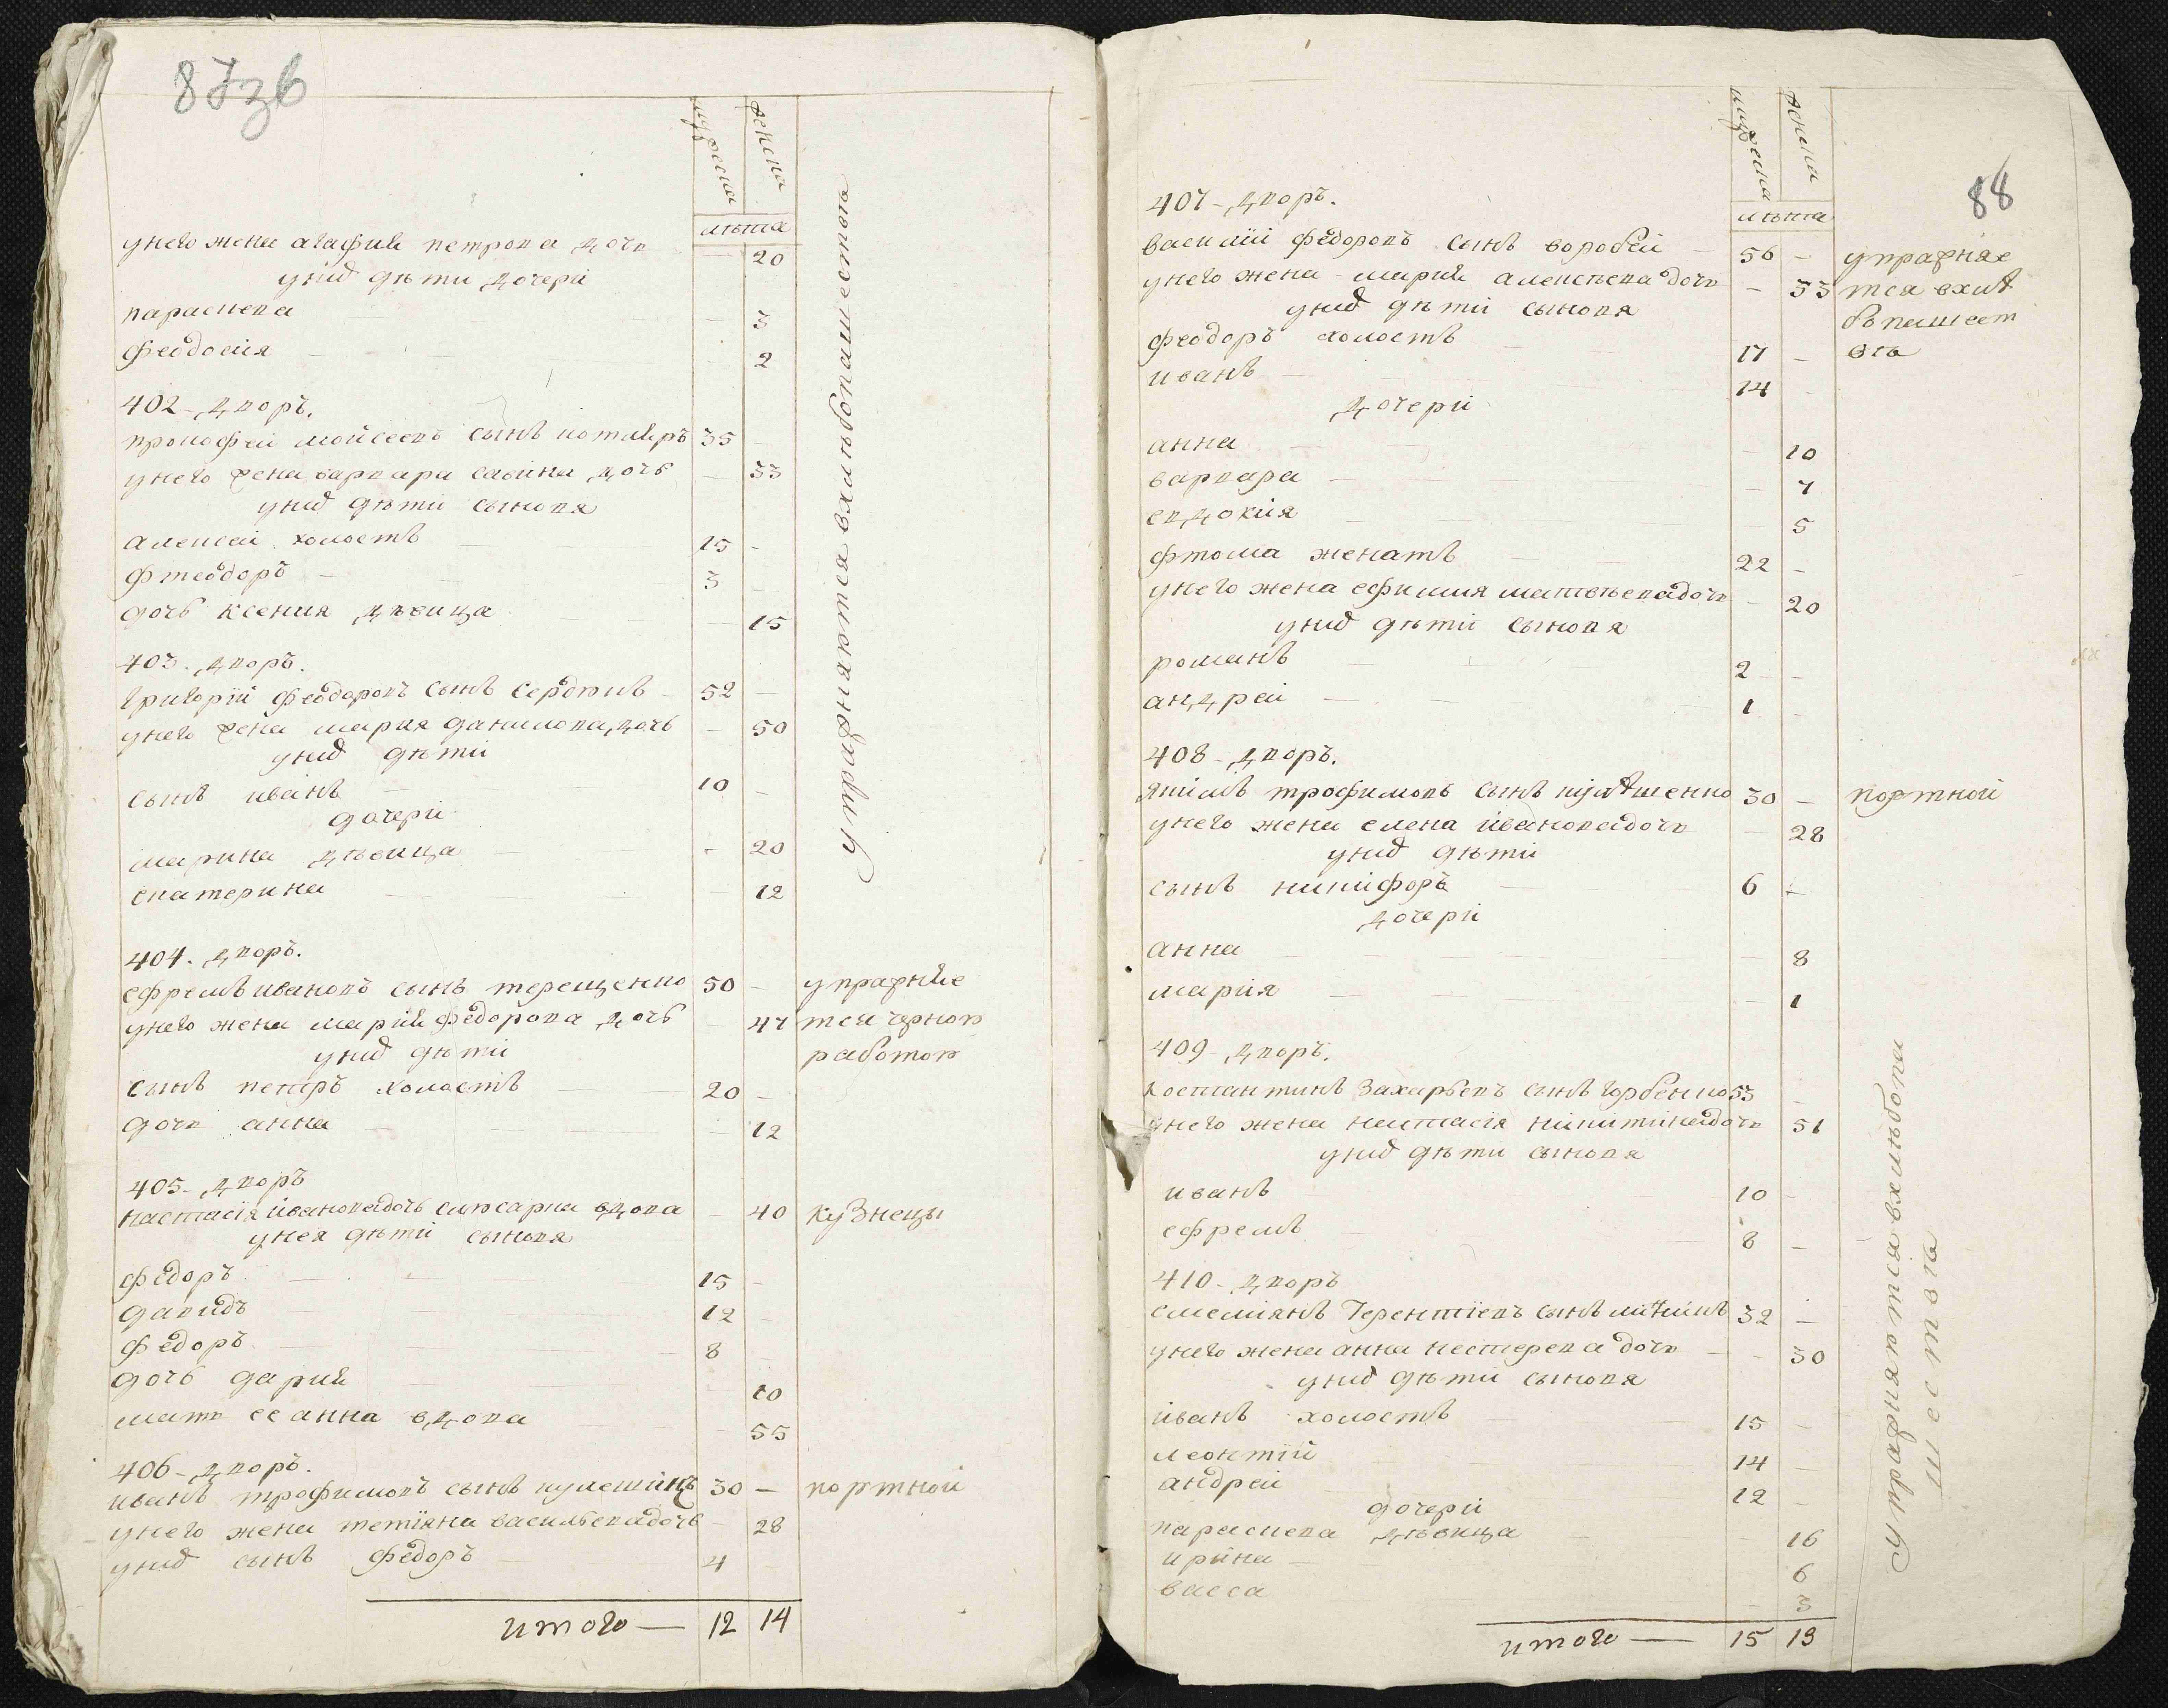 87зв
мужеска
женска
лѣта
унего жена агафия петрова дочь — 20
унид дѣти дочери
параскева — 3
феодосия — 2
402 - дворъ.
прокофей мойсеевъ сынъ котляръ 35 —
унего жена варвара савина дочь — 33
унид дѣти сыновя
алексей холостъ 15 —
фтеодоръ — 3 —
дочь ксения дѣвица — 15
403 - дворъ.
григорий феодоровъ сынъ сердюкъ — 52 —
унего жена мария данилова дочь — 50
унид дѣти
сынъ иванъ 10 —
дочери
марина дѣвица — 20
екатерина — 12
404 - дворъ.
ефремъ ивановъ сынъ терещенко 50 — упражняе
унего жена мария федорова дочь — 47 тся черною
унид дѣти работою
сынъ петръ холостъ — 20 —
дочь анна — 12
405 - дворъ
настасия иванова дочь слюсарка вдова — 40 кузнецы
унея дѣти сыновя
федоръ 15 —
давидъ 12 —
федоръ 8
дочь дария 10
мать ее анна вдова — 55
406 - дворъ.
иванъ трофимовъ сынъ кулешинъ 30 — портной
унего жена тетияна васильева дочь — 28
унид сынъ федоръ 4
итого — 12 14
упражняются вхлѣбопашествѣ
88
мужеска
женска
лѣта
407 - дворъ.
василий федоровъ сынъ воробей — 56 — упражняе
унего жена мария алексѣева дочь — 33 тся вхлѣ
унид дѣти сыновя бопашест
феодоръ холостъ 17 — вѣ
иванъ — 14 —
дочери
анна — 10
варвара — 7
евдокия — 5
фтома женатъ 22 —
унего жена ефимия матвѣева дочь — 20
унид дѣти сыновя
романъ 2 —
андрей — 1 —
408 - дворъ.
якимъ трофимовъ сынъ 30 — портной
унего жена елена иванова дочь — 28
унид дѣти
сынъ никифоръ 6 —
дочери
анна — 8
мария — 1
409 - дворъ.
костантинъ захарьевъ сынъ горбенко 53 —
унего жена настасия никитина дочь 51
унид дѣти сыновя
иванъ 10 —
ефремъ 8 —
410 - дворъ
емелиянъ терентиевъ сынъ 32 —
унего жена анна нестерева дочь — 30
унид дѣти сыновя
иванъ холостъ 15 —
леонтий 14 —
андрей 12 —
дочери
параскева дѣвица — 16
ирина — 6
васса — 3
итого — 15 13
упражняются вхлѣбопа
шествѣ